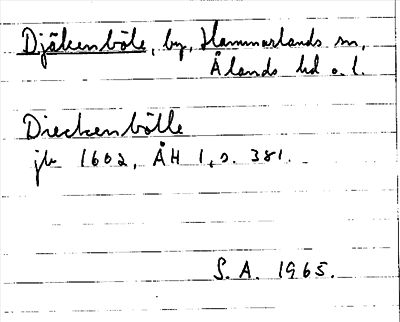 Djäkenböle, by, Hammarlands sn,
Ålands hd o. l.
Dieckenbölle
jb 1602, ÅH 1, s. 381.
S. A. 1965.